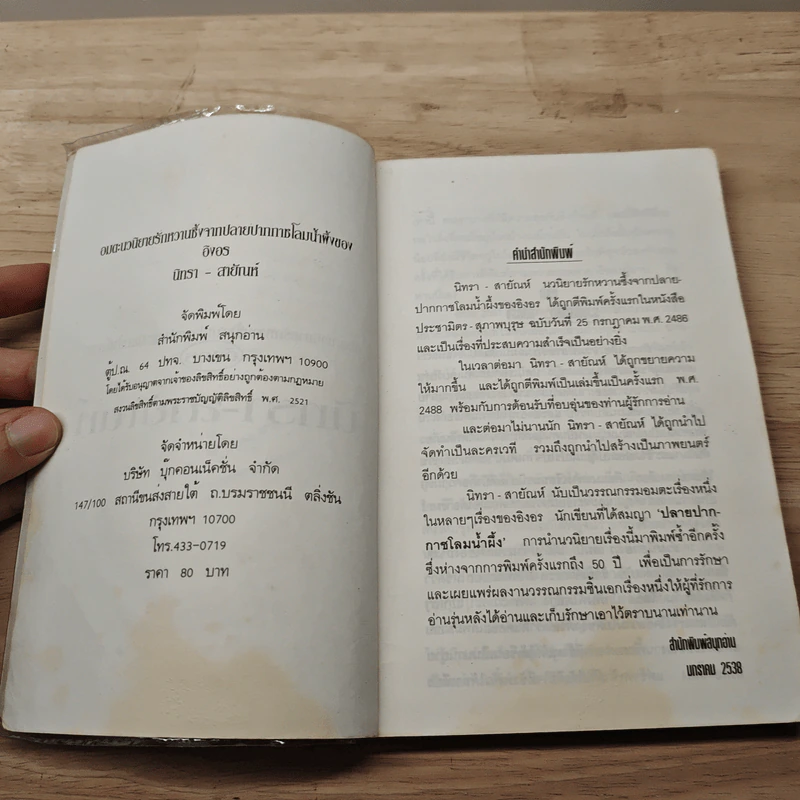 อมตะนวนิยายรักหวานซึ้งจากปลายปากกาชโลมน้ำผึ้งของ
อิงอร
นิทรา - สายัณห์
จัดพิมพ์โดย
สำนักพิมพ์ สนุกอ่าน
ตู้ป.ณ. 64 ปทจ. บางเขน กรุงเทพฯ 10900
โดยได้รับอนุญาตจากเจ้าของลิขสิทธิ์อย่างถูกต้องตามกฎหมาย
สงวนลิขสิทธิ์ตามพระราชบัญญัติลิขสิทธิ์ พ.ศ. 2521
จัดจำหน่ายโดย
บริษัท บุ๊กคอนเน็คชั่น จำกัด
147/100 สถานีขนส่งสายใต้ ถ.บรมราชชนนี ตลิ่งชัน
กรุงเทพฯ 10700
โทร.433-0719
ราคา 80 บาท
คำนำสำนักพิมพ์
นิทรา - สายัณห์ นวนิยายรักหวานซึ้งจากปลาย-
ปากกาชโลมน้ำผึ้งของอิงอร ได้ถูกตีพิมพ์ครั้งแรกในหนังสือ
ประชามิตร - สุภาพบุรุษ ฉบับวันที่ 25 กรกฎาคม พ.ศ. 2486
และเป็นเรื่องที่ประสบความสำเร็จเป็นอย่างยิ่ง
ในเวลาต่อมา นิทรา - สายัณห์ ได้ถูกขยายความ
ให้มากขึ้น และได้ถูกตีพิมพ์เป็นเล่มขึ้นเป็นครั้งแรก พ.ศ.
2488 พร้อมกับการต้อนรับที่อบอุ่นของท่านผู้รักการอ่าน
และต่อมาไม่นานนัก นิทรา - สายัณห์ ได้ถูกนำไป
จัดทำเป็นละครเวที รวมถึงถูกนำไปสร้างเป็นภาพยนตร์
อีกด้วย
นิทรา - สายัณห์ นับเป็นวรรณกรรมอมตะเรื่องหนึ่ง
ในหลายๆเรื่องของอิงอร นักเขียนที่ได้สมญา 'ปลายปาก-
กาชโลมน้ำผึ้ง' การนำนวนิยายเรื่องนี้มาพิมพ์ซ้ำอีกครั้ง
ซึ่งห่างจากการพิมพ์ครั้งแรกถึง 50 ปี เพื่อเป็นการรักษา
และเผยแพร่ผลงานวรรณกรรมชิ้นเอกเรื่องหนึ่งให้ผู้ที่รักการ
อ่านรุ่นหลังได้อ่านและเก็บรักษาเอาไว้ตราบนานเท่านาน
สำนักพิมพ์สนุกอ่าน
มกราคม 2538